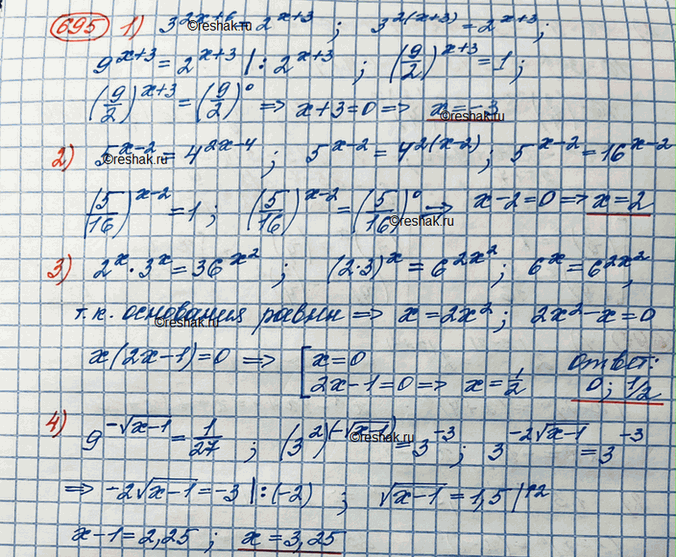 695 1) 3^(2x+6) = 2^(x+3) ; 3^(2(x+3)) = 2^(x+3) ;
9^(x+3) = 2^(x+3) | : 2^(x+3) ; (9/2)^(x+3) = 1 ;
(9/2)^(x+3) = (9/2)^0 ⇒ x+3=0 ⇒ x=-3
©reshak.ru
2) 5^(x-2) = 4^(2x-4) ; 5^(x-2) = 4^(2(x-2)) ; 5^(x-2) = 16^(x-2)
©reshak.ru
(5/16)^(x-2) = 1 ; (5/16)^(x-2) = (5/16)^0 ⇒ x-2=0 ⇒ x=2
©reshak.ru
3) 2^x · 3^x = 36^(x^2) ; (2·3)^x = 6^(2x^2) ; 6^x = 6^(2x^2) ;
т.к. основания равны ⇒ x = 2x^2 ; 2x^2 - x = 0
©reshak.ru
x(2x-1)=0 ⇒ [ x=0 Ответ:
2x-1=0 ⇒ x = 1/2 0 ; 1/2
4) 9^(-√(x-1)) = 1/27 ; (3^2)^(-√(x-1)) = 3^(-3) ; 3^(-2√(x-1)) = 3^(-3)
©reshak.ru
⇒ -2√(x-1) = -3 | : (-2) ; √(x-1) = 1,5 | ↑2
x-1 = 2,25 ; x = 3,25